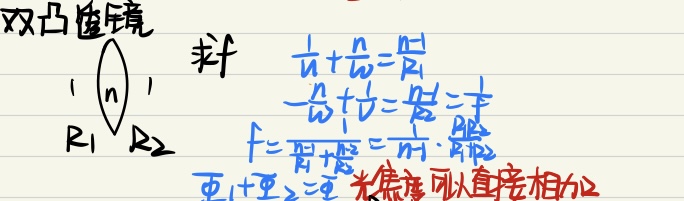 双凸透镜
求f
1 n 1
R1 R2
1/u + n/w = n-1/R1
-n/w + 1/v = n-1/R2 = 1/f
f = 1/(n-1/R1 + n-2/R2) = 1/n-1 · R1R2/R1+R2
Φ1+Φ2=Φ 光焦度可以直接相加